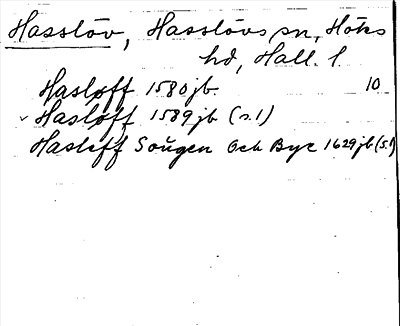 Hasslöv, Hasslövs sn, Höks
hd, Hall. l.
Hasloff 1580 jb. 10
Hasloff 1589 jb (s. 1)
Hasleff Sougen Och Bye 1629 jb (s. 1)